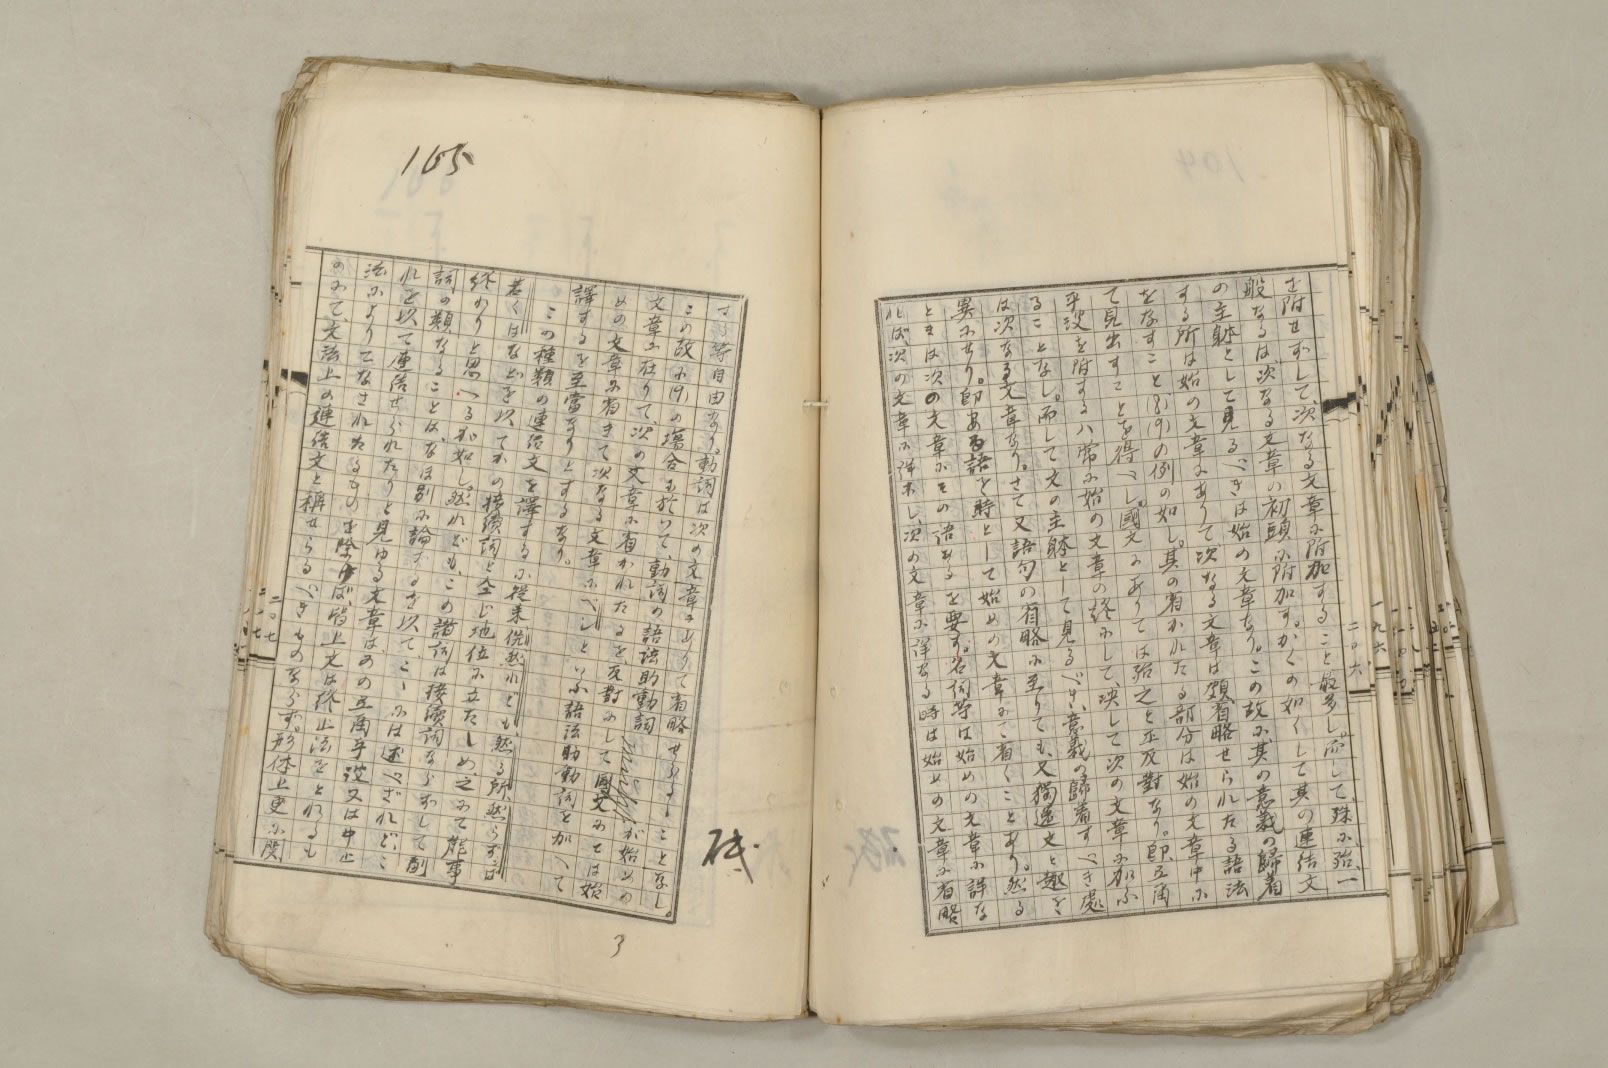 を附せずして、次なる文章に附加すること最多し。而して、殊に殆、一
般なるは、次なる文章の初頭に附加す。かくの如くして其の連結文
の主躰として見るべきは始の文章なり。この故に其の意義の歸着
する所は始の文章にありて次なる文章は頗省略せられたる語法
をなすこと(ホ)(リ)の例の如し。其の省かれたる部分は始の文章中に
て見出すことを得べし。國文にありては殆之と正反對なり。即、互角
平沒を附するハ常に始の文章の終にして、決して次の文章に加ふ
ることなし。而して文の主躰として見るべき、意義の歸着すべき處
は次なる文章なり。さて又語句の省略に至りても、又獨逸文と趣を
異にせり。即ある語を時として始めの文章にて省くことあり。然る
ときは次の文章にその語あるを要す。名詞等は始めの文章に詳な
れば、次の文章に洋
し、次の文章に詳なる時は始めの文章に省略
す
等自由なり。動詞は次の文章にありて省略せらるゝことなし。
この故に(リ)の塲合に於いて、動詞の語法助動詞
が始めの
文章に在りて、次の文章に省かれたるを反對にして國文にては始
めの文章に省きて次なる文章にべしといふ語法助動詞を加へて
譯するを至當なりとするなり。
この種類の連結文を譯するに從來、然れども、然る所、然らずば
若くはなどを以てかの接續詞と全じ地位に立たしめ、之にて能事
終れりと思へるが如し。然れども、この諸詞は接續詞ならずして副
詞の類なることは、なほ別に論ずるを以てこゝには述べざれど、こ
れを以て連結せられたりと見ゆる文章は、かの互角平沒又は中止
法によりてなされたるものを除けば、皆上文は終止法をとれるも
のにて、文法上の連結文と稱せらるべきものならず。形体上更に関
105
3
二〇六
二〇七
一九六